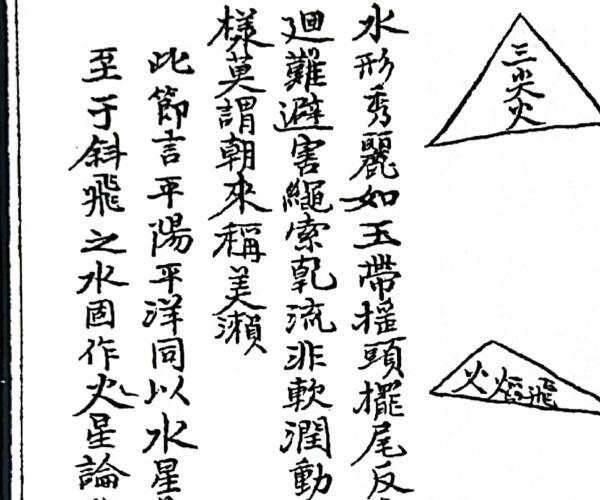 三尖火
飛焰火
水形秀麗如玉帶搖頭擺尾反
迴難避害繩索乹流非軟潤動
樣莫謂朝來稱美瀬
此節言平陽平洋同以水星
至于斜飛之水固作火星論